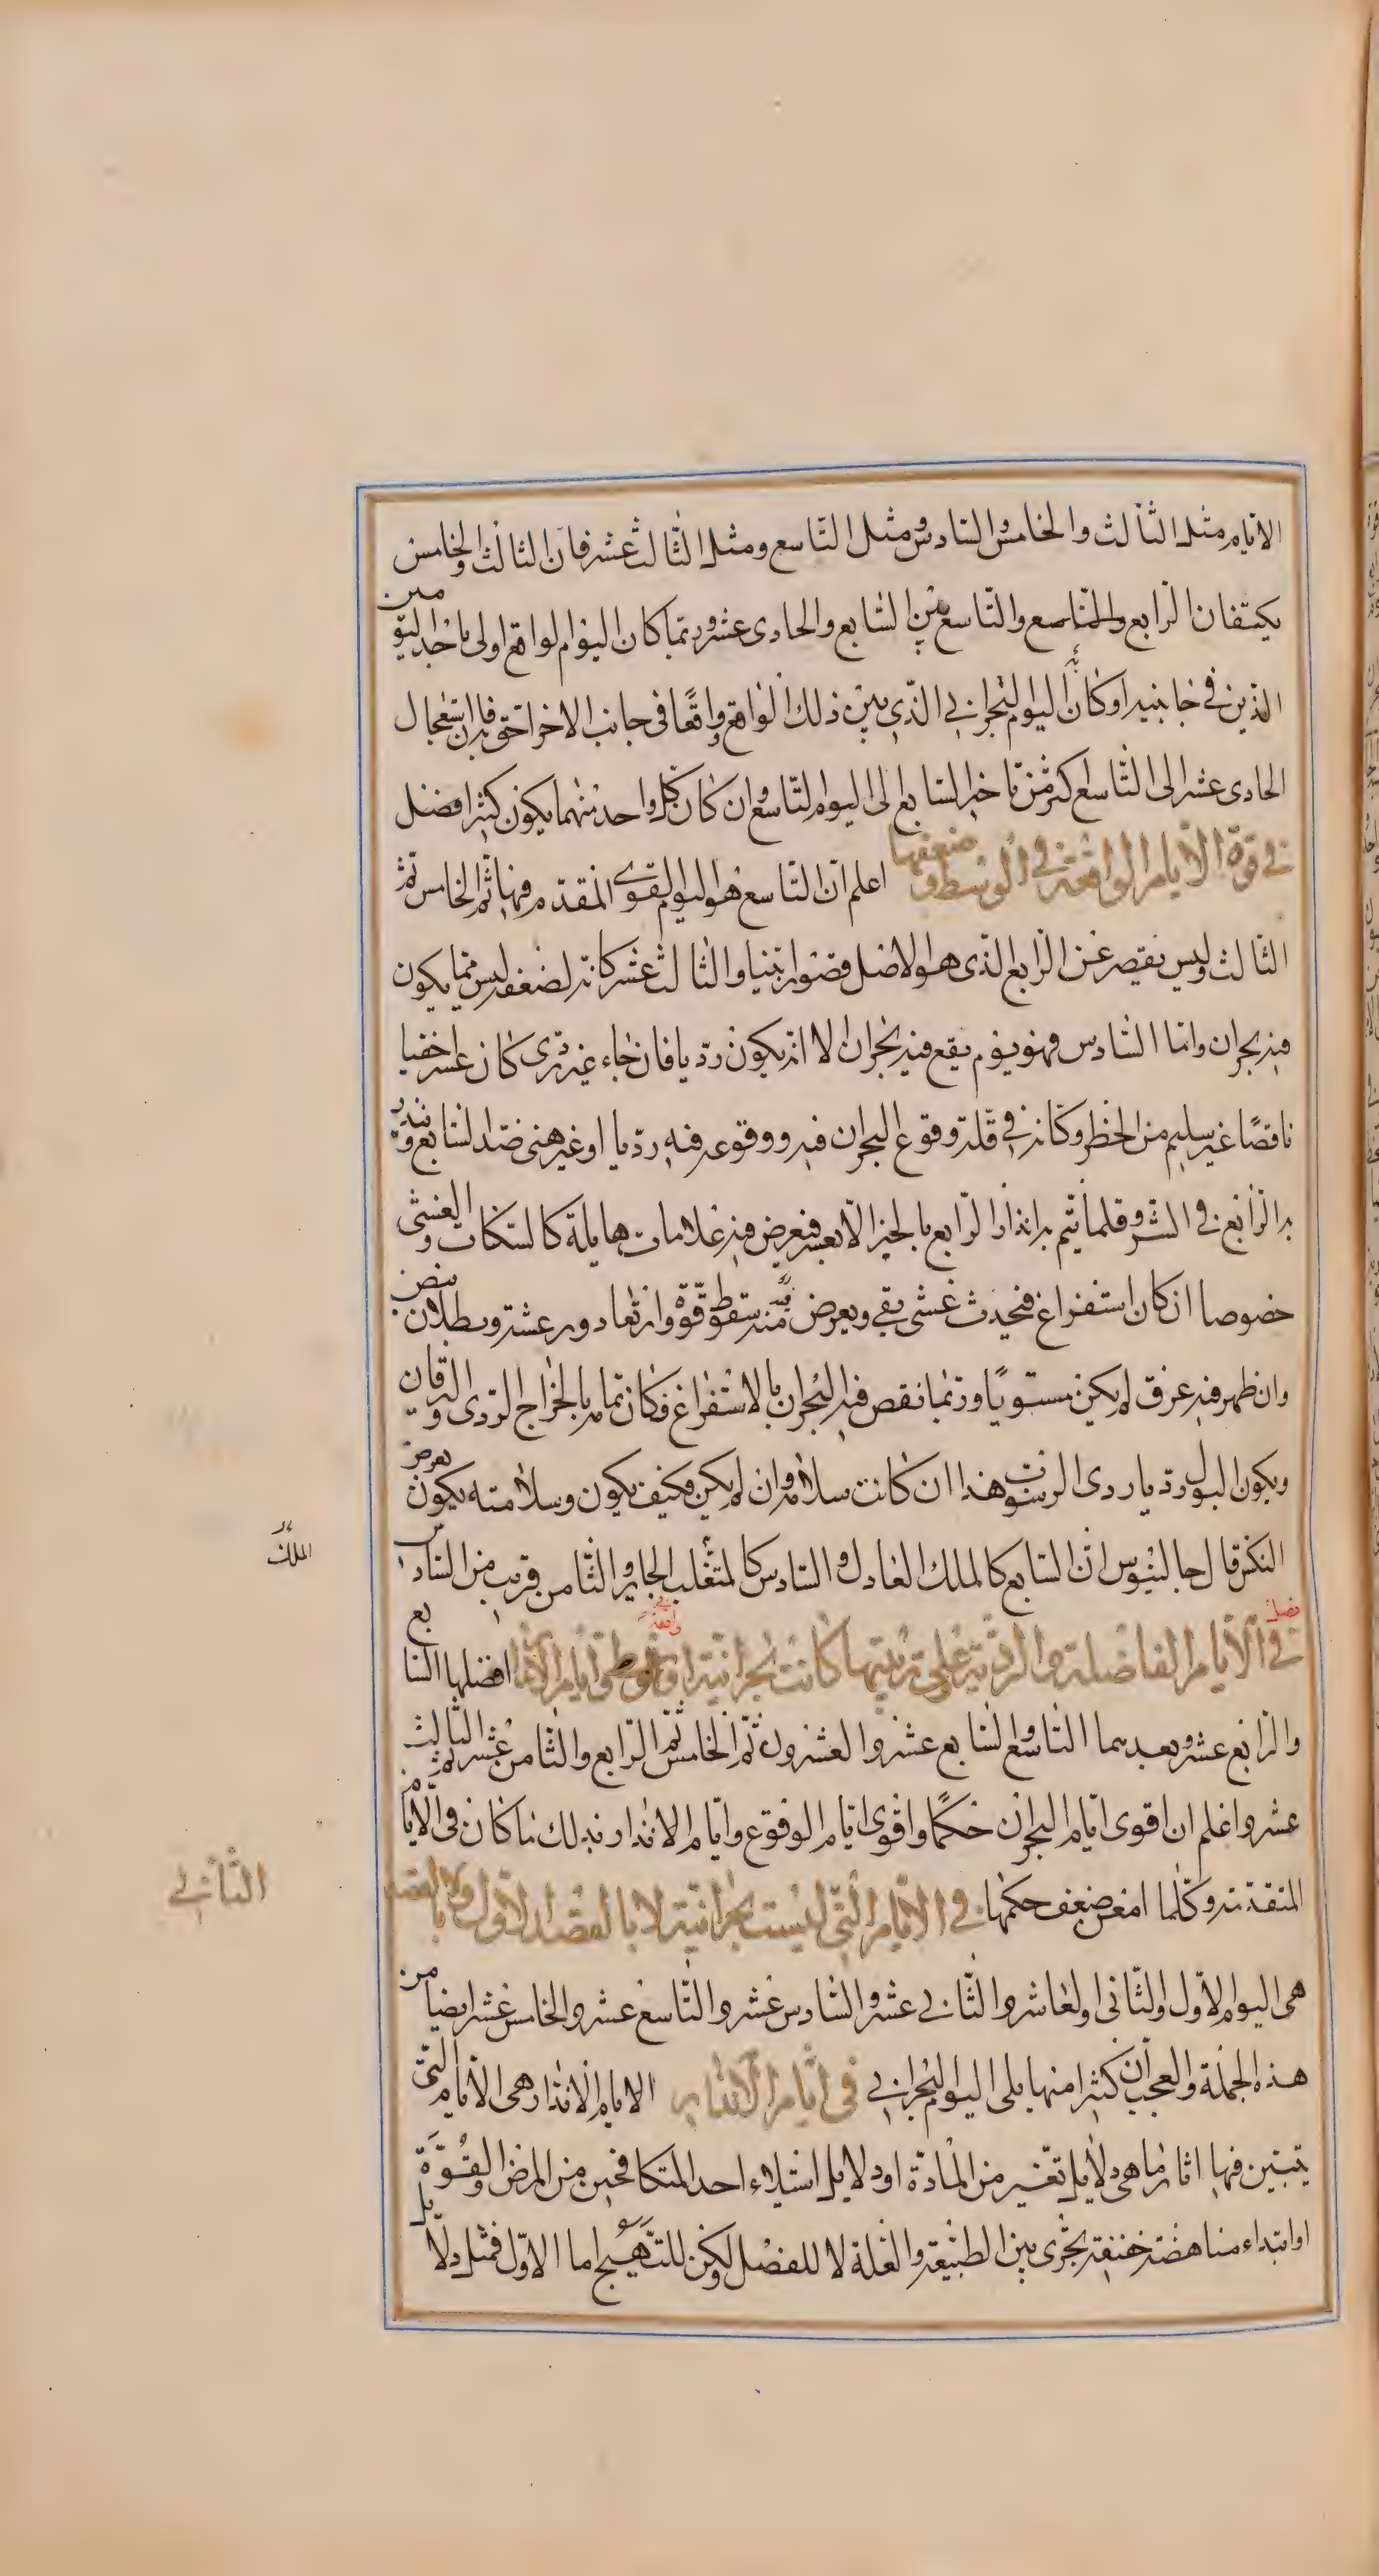 الايام مثل الثالث والخامس والسادس ومثل التاسع ومثل الثالث عشر فان الثالث والخامس
يكتنفان الرابع والتاسع والتاسع بين السابع والحادى عشر وربّما كان اليوم الواقع اولى باحد اليومين
الذين فى جانبيه او كانّ اليوم البحرانى الذى بين ذلك الواقع واقعًا فى جانب الاخر احق به فان استعجال
الحادى عشر الى التاسع اكثر من تاخير السابع الى اليوم التاسع وان كان كل واحد منهما يكون كثيرا فصل
فى قوة الايام الواقعة فى الوسط وضعفها اعلم ان التاسع هو اليوم القوى المقدم فيها ثم الخامس ثم
الثالث وليس يقصر عن الرابع الذى هو الاصل قصورا بينا والثالث عشر كانه لضعفه ليس ممّا يكون
فيه بحران واما السادس فهو يوم يقع فيه بحران الا انه يكون رديا فان جاء غير ردى كان عسرا خفيا
ناقصًا غير سليم من الخطر وكانه فى قلة وقوع البحران فيه ووقوعه فيه رديا او غير هنى ضد السابع وينذر
به الرابع فى الشر وقلما يتم به انذار الرابع بالخير الا بعسر فيعرض فيه علامات هايلة كالسكات والغشى
خصوصا ان كان استفراغ فيحدث غشى بقى ويعرض منه سقوط قوّة وارتعاد ورعشة وبطلان نبض
وان ظهر فيه عرق لم يكن مستويًا وربما نقص فيه البحران بالاستفراغ فكان تمامه بالخراج الردى واليرقان
ويكون البول رديا ردى الرسوب هذا ان كانت سلامة وان لم يكن فكيف يكون وسلامته يكون بعرض
النكس قال جالينوس ان السابع كالملك العادل والسادس كالمتغلب الجاير والثامن قريب من السادس
الملك
فصل فى الايام الفاضلة والردية على ترتيبها كانت بحرانية او واقعة فى الوسط وايام الانذار افضلها السابع
والرابع عشر وبعدهما التاسع والسابع عشر والعشرون ثم الخامس ثم الرابع والثامن عشر ثم الثالث
عشر واعلم ان اقوى ايام البحران حكمًا واقوى ايام الوقوع وايام الانذار بذلك ما كان فى الايام
المتقدمة وكلما امعن ضعف حكمها فى الايام التى ليست بحرانية لا بالقصد الاول ولا بالقصد
الثانى
هى اليوم الاول والثانى والعاشر والثانى عشر والسادس عشر والتاسع عشر والخامس عشر ايضا من
هذه الجملة والعجب ان كثيرا منها يلى اليوم البحرانى فى ايام الانذار الايام الانذار هى الايام التى
يتبين فيها اثار ما هى دلايل تغير من المادّة او دلايل استيلاء احد المتكافحين من المرض والقوّة
او ابتداء مناهضة خفيفة تجرى بين الطبيعة والعلة لا للفصل ولكن للتهييج اما الاول فمثل دلايل